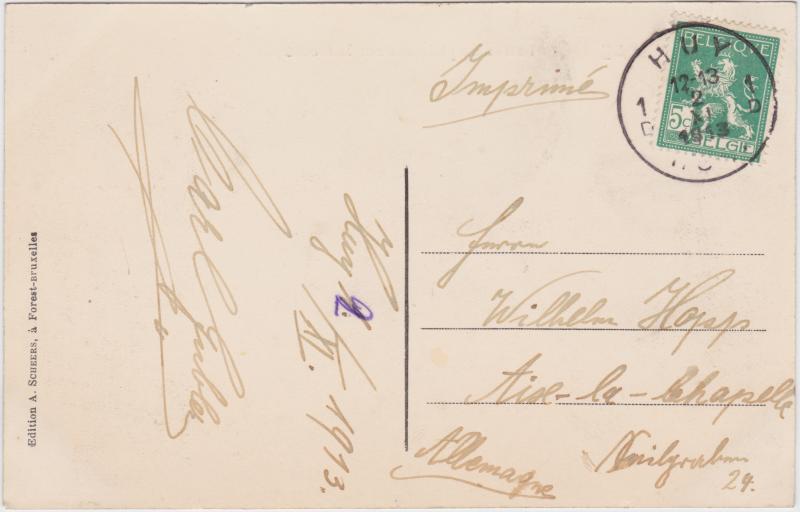 Imprimé
BELGIQUE
5c
BELGIË
HUY
12-13
2
XI
1913
1 D
1 D
HOEI
Herrn
Wilhelm Hopp
Aix-la-Chapelle
Allemagne
24.
Huy 2.
XI. 1913.
Carl
Edition A. SCHEERS, à Forest-Bruxelles